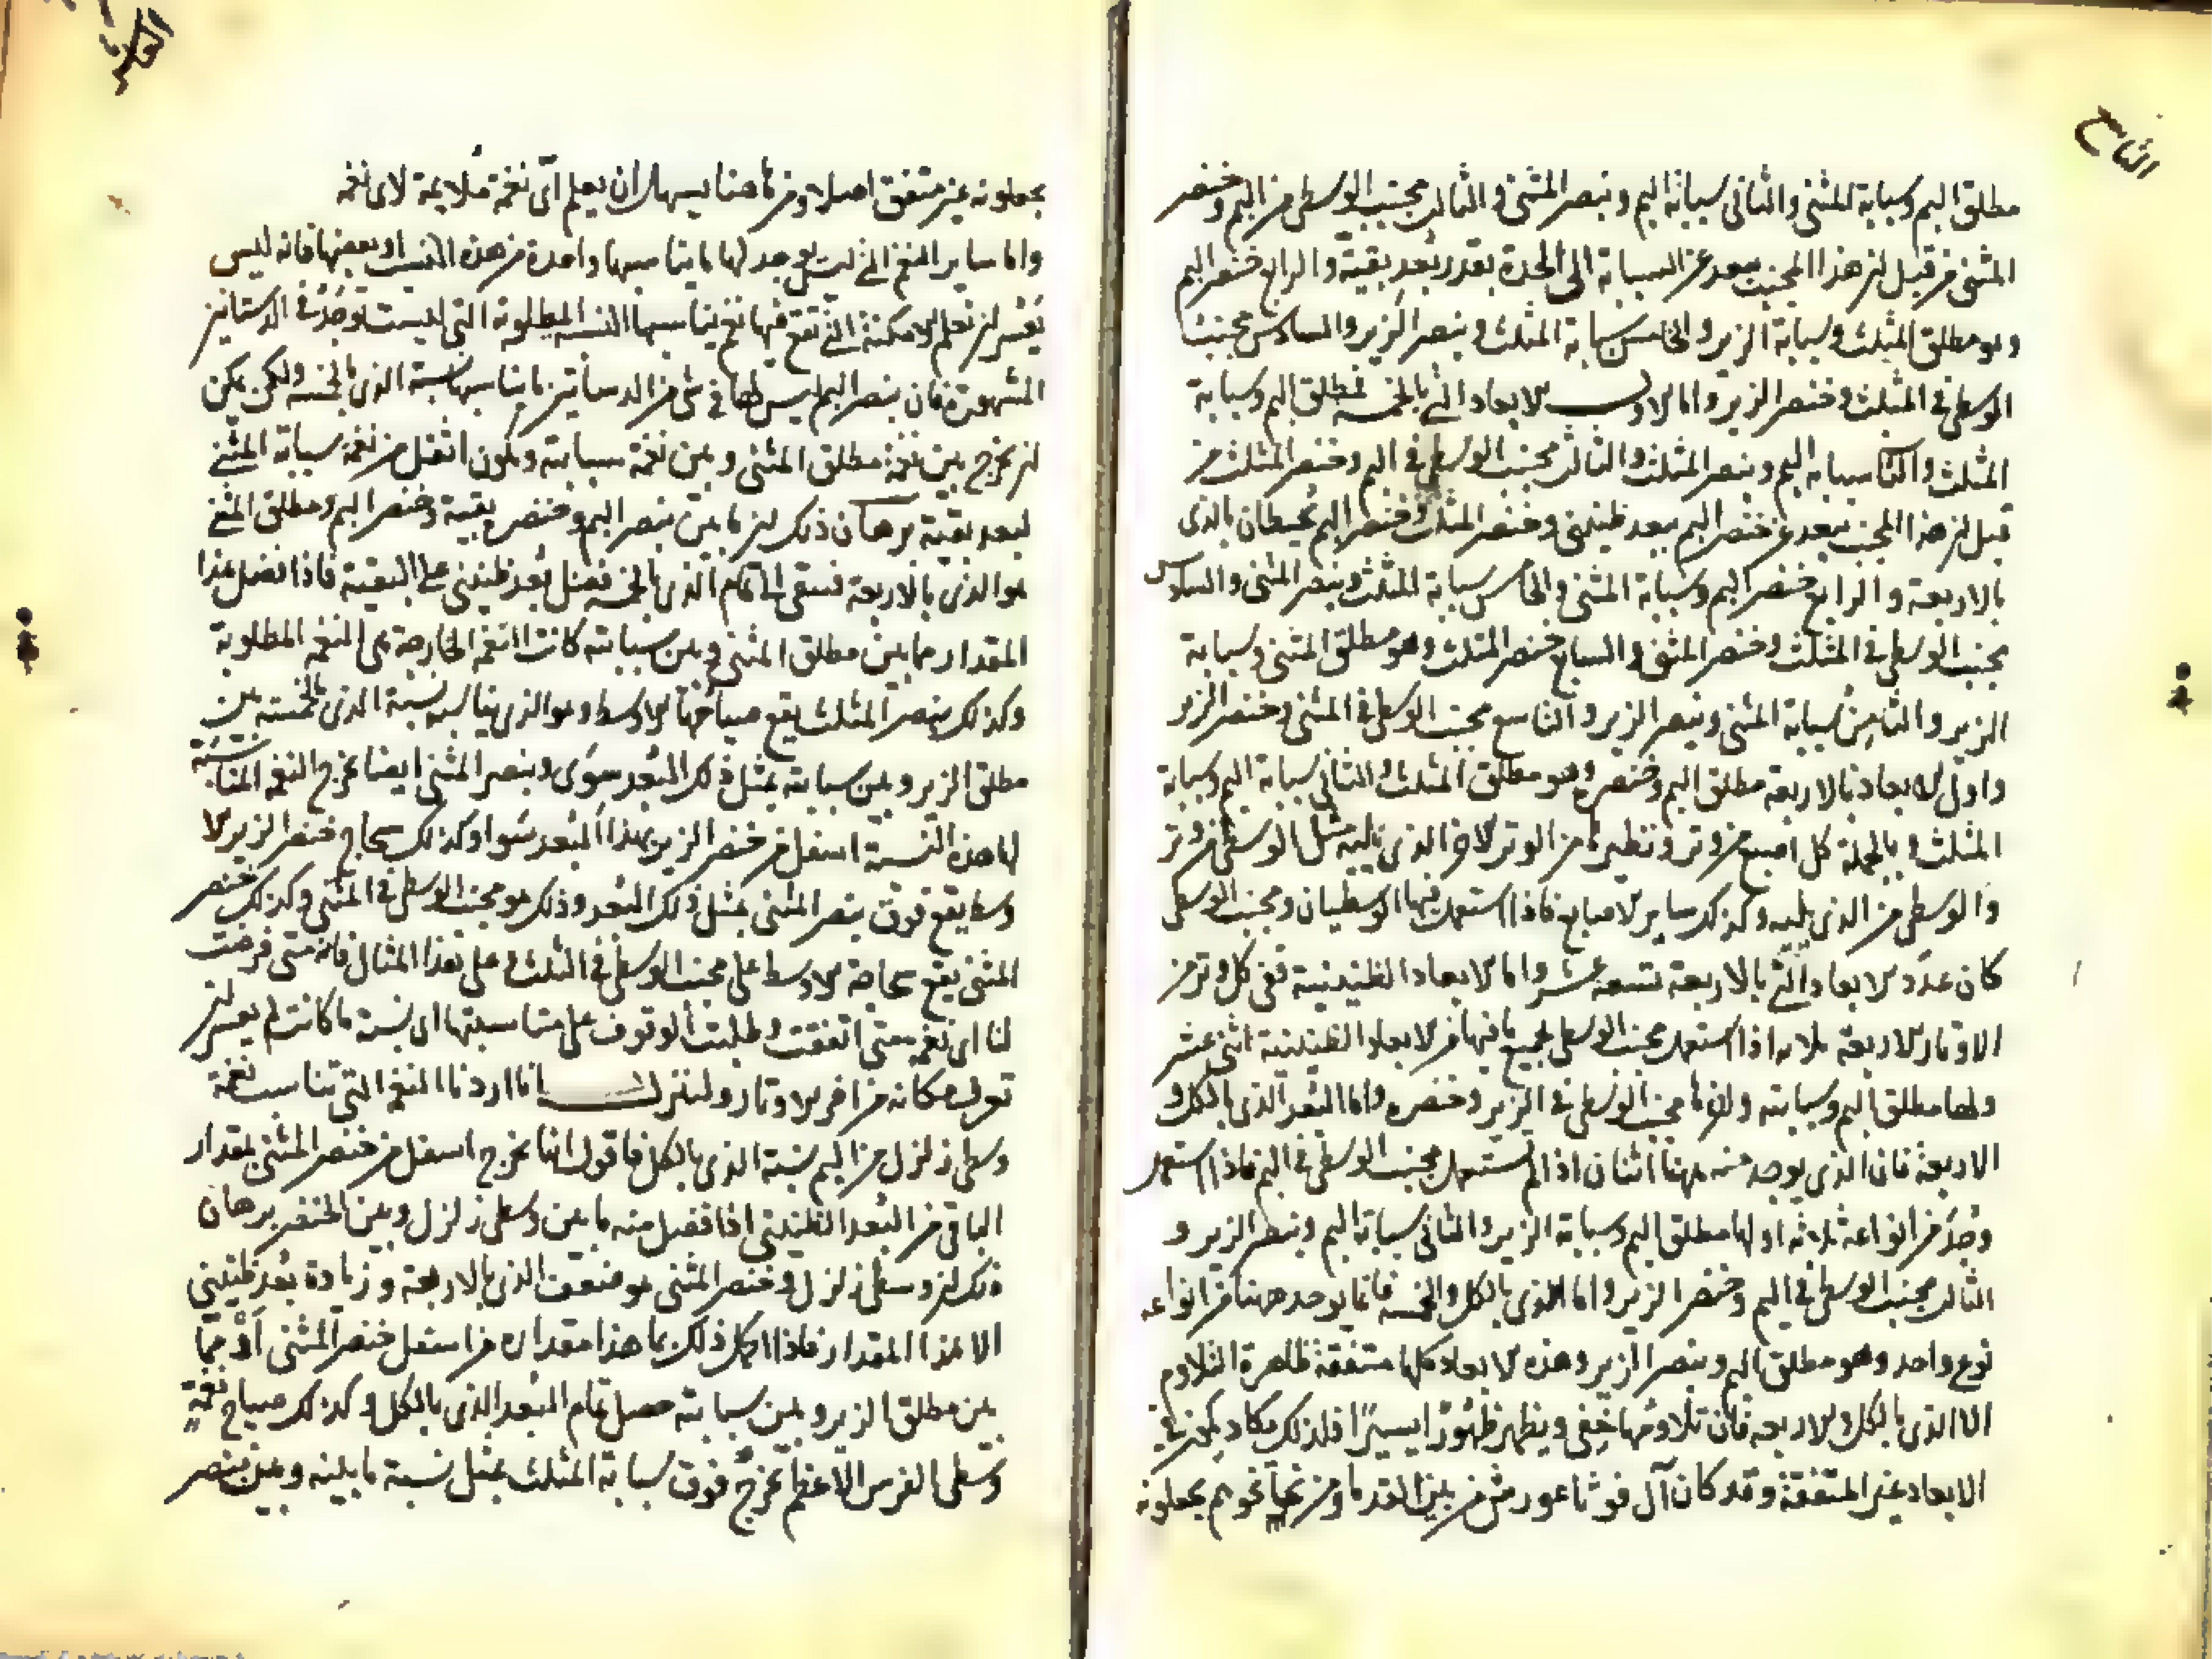 مطلق البم وسبابة المثنى والثانى سبابة البم وبنصر المثنى والثالث مجنب الوسطى من البم وخنصر
المثنى من قبل ان هذا المجنب يبعد عن السبابة الى الحدة بقدر بعد بقية والرابع خنصر البم
وهو مطلق المثلث وسبابة الزير والخامس سبابة المثلث وبنصر الزير والسادس مجنب
الوسطى فى المثلث وخنصر الزير واما الاول من الابعاد التى بالخمسة فمطلق البم وسبابة
المثلث والثانى سبابة البم وبنصر المثلث والثالث مجنب الوسطى فى البم وخنصر المثلث من
قبل ان هذا المجنب يبعد عن خنصر البم ببعد طنينى وخنصر المثلث وخنصر البم يحيطان بالذى
بالاربعة والرابع خنصر البم وسبابة المثنى والخامس سبابة المثلث وبنصر المثنى والسادس
مجنب الوسطى فى المثلث وخنصر المثنى والسابع خنصر المثلث وهو مطلق المثنى وسبابة
الزير والثامن سبابة المثنى وبنصر الزير والتاسع مجنب الوسطى فى المثنى وخنصر الزير
واول الابعاد بالاربعة مطلق البم وخنصره وهو مطلق المثلث والثانى سبابة البم وسبابة
المثلث وبالجملة كل اصبع من وتر ونظيره من الوتر الاخر الذى يليه مثل الوسطى من وتر
والوسطى من الذى يليه وكذلك ساير الاصابع فاذا استعمل فيها الوسطيان ومجنب الوسطى
كان عدد الابعاد التى بالاربعة تسعة عشر واما الابعاد الطنينية ففى كل وتر من
الاوتار الاربعة ثلاثة اذا استعمل مجنب الوسطى فجميع ما فيها من الابعاد الطنينية اثنى عشر
اولها مطلق البم وسبابته واخرها مجنب الوسطى فى الزير وخنصره واما البعد الذى بالكل و
الاربعة فان الذى يوجد منه ههنا اثنان اذا لم يستعمل مجنب الوسطى فى البم فاذا استعمل
وجد من انواعه ثلاثة اولها مطلق البم وسبابة الزير والثانى سبابة البم وبنصر الزير و
الثالث مجنب الوسطى فى البم وخنصر الزير واما الذى بالكل والخمسة فانما يوجد ههنا من انواعه
نوع واحد وهو مطلق البم وبنصر الزير وهذه الابعاد كلها متفقة ظاهرة التلاوم
الا الذى بالكل والاربعة فان تلاومها خفى ويظهر ظهورا يسيرا فلذلك يكاد يكون فى
الابعاد غير المتفقة وقد كان آل فوثاغورس من بين القدما ومن نحا نحوهم يجعلونه
يجعلونه غير متفق اصلا ومن هاهنا يسهل ان يعلم اى نغمة ملايمة لاى نغمة
واما ساير النغم التى ليس يوجد لها ما يناسبها واحدة من هذه النسب او بعضها فانه ليس
يعسر ان نعلم الامكنة التى تقع فيها نغم يناسبها النسبة المطلوبة التى ليست توجد فى الدساتين
المشهورة فان بنصر البم ليس لها فى شى من الدساتين ما يناسبها نسبة الذى بالخمسة ولكن يمكن
ان يخرج بين نغمة مطلق المثنى وبين نغمة سبابته ويكون اثقل من نغمة سبابة المثنى
ببعد بقية برهان ذلك ان ما بين بنصر البم وخنصره بقية وخنصر البم ومطلق المثنى
هو الذى بالاربعة فبقى الى تمام الذى بالخمسة فضل بعد طنينى على البقية فاذا فصل هذا
المقدار مما بين مطلق المثنى وبين سبابته كانت النغمة الخارجة هى النغمة المطلوبة
وكذلك بنصر المثلث يقع صياحها الاوسط وهو الذى يناسبه نسبة الذى بالخمسة بين
مطلق الزير وبين سبابته بمثل ذلك البعد سوى وبنصر المثنى ايضا يخرج النغم المناسبة
لها هذه النسبة اسفل من خنصر الزير بهذا البعد سوا وكذلك سجاح خنصر الزير الا
وسط يقع فوق بنصر المثنى بمثل ذلك البعد وذلك هو مجنب الوسطى فى المثنى وكذلك خنصر
المثنى يقع سجاحه الاوسط على مجنب الوسطى فى المثلث وعلى هذا المثال فانه متى فرضت
لنا اى نغمة متى اتفقت وطلبت الوقوف على مناسبتها اى نسبة ما كانت لم يعسر ان
تعرف مكانه من اخر الاوتار ولننزل انا اردنا النغم التى تناسب نغمة
وسطى زلزل من البم نسبة الذى بالكل فاقول انها تخرج اسفل من خنصر المثنى بمقدار
الباقى من البعد الطنينى اذا فصل منه ما بين وسطى زلزل وبين الخنصر برهان
ذلك ان وسطى زلزل وخنصر المثنى هو ضعف الذى بالاربعة وزيادة بعد طنينى
الا هذا المقدار فاذا اكمل ذلك بما هذا مقداره من اسفل خنصر المثنى او مما
بين مطلق الزير وبين سبابته حصل تمام البعد الذى بالكل وكذلك صياح نغمة
وسطى الفرس الاعظم تخرج فوق سبابة المثلث بمثل نسبة ما بينه وبين بنصر